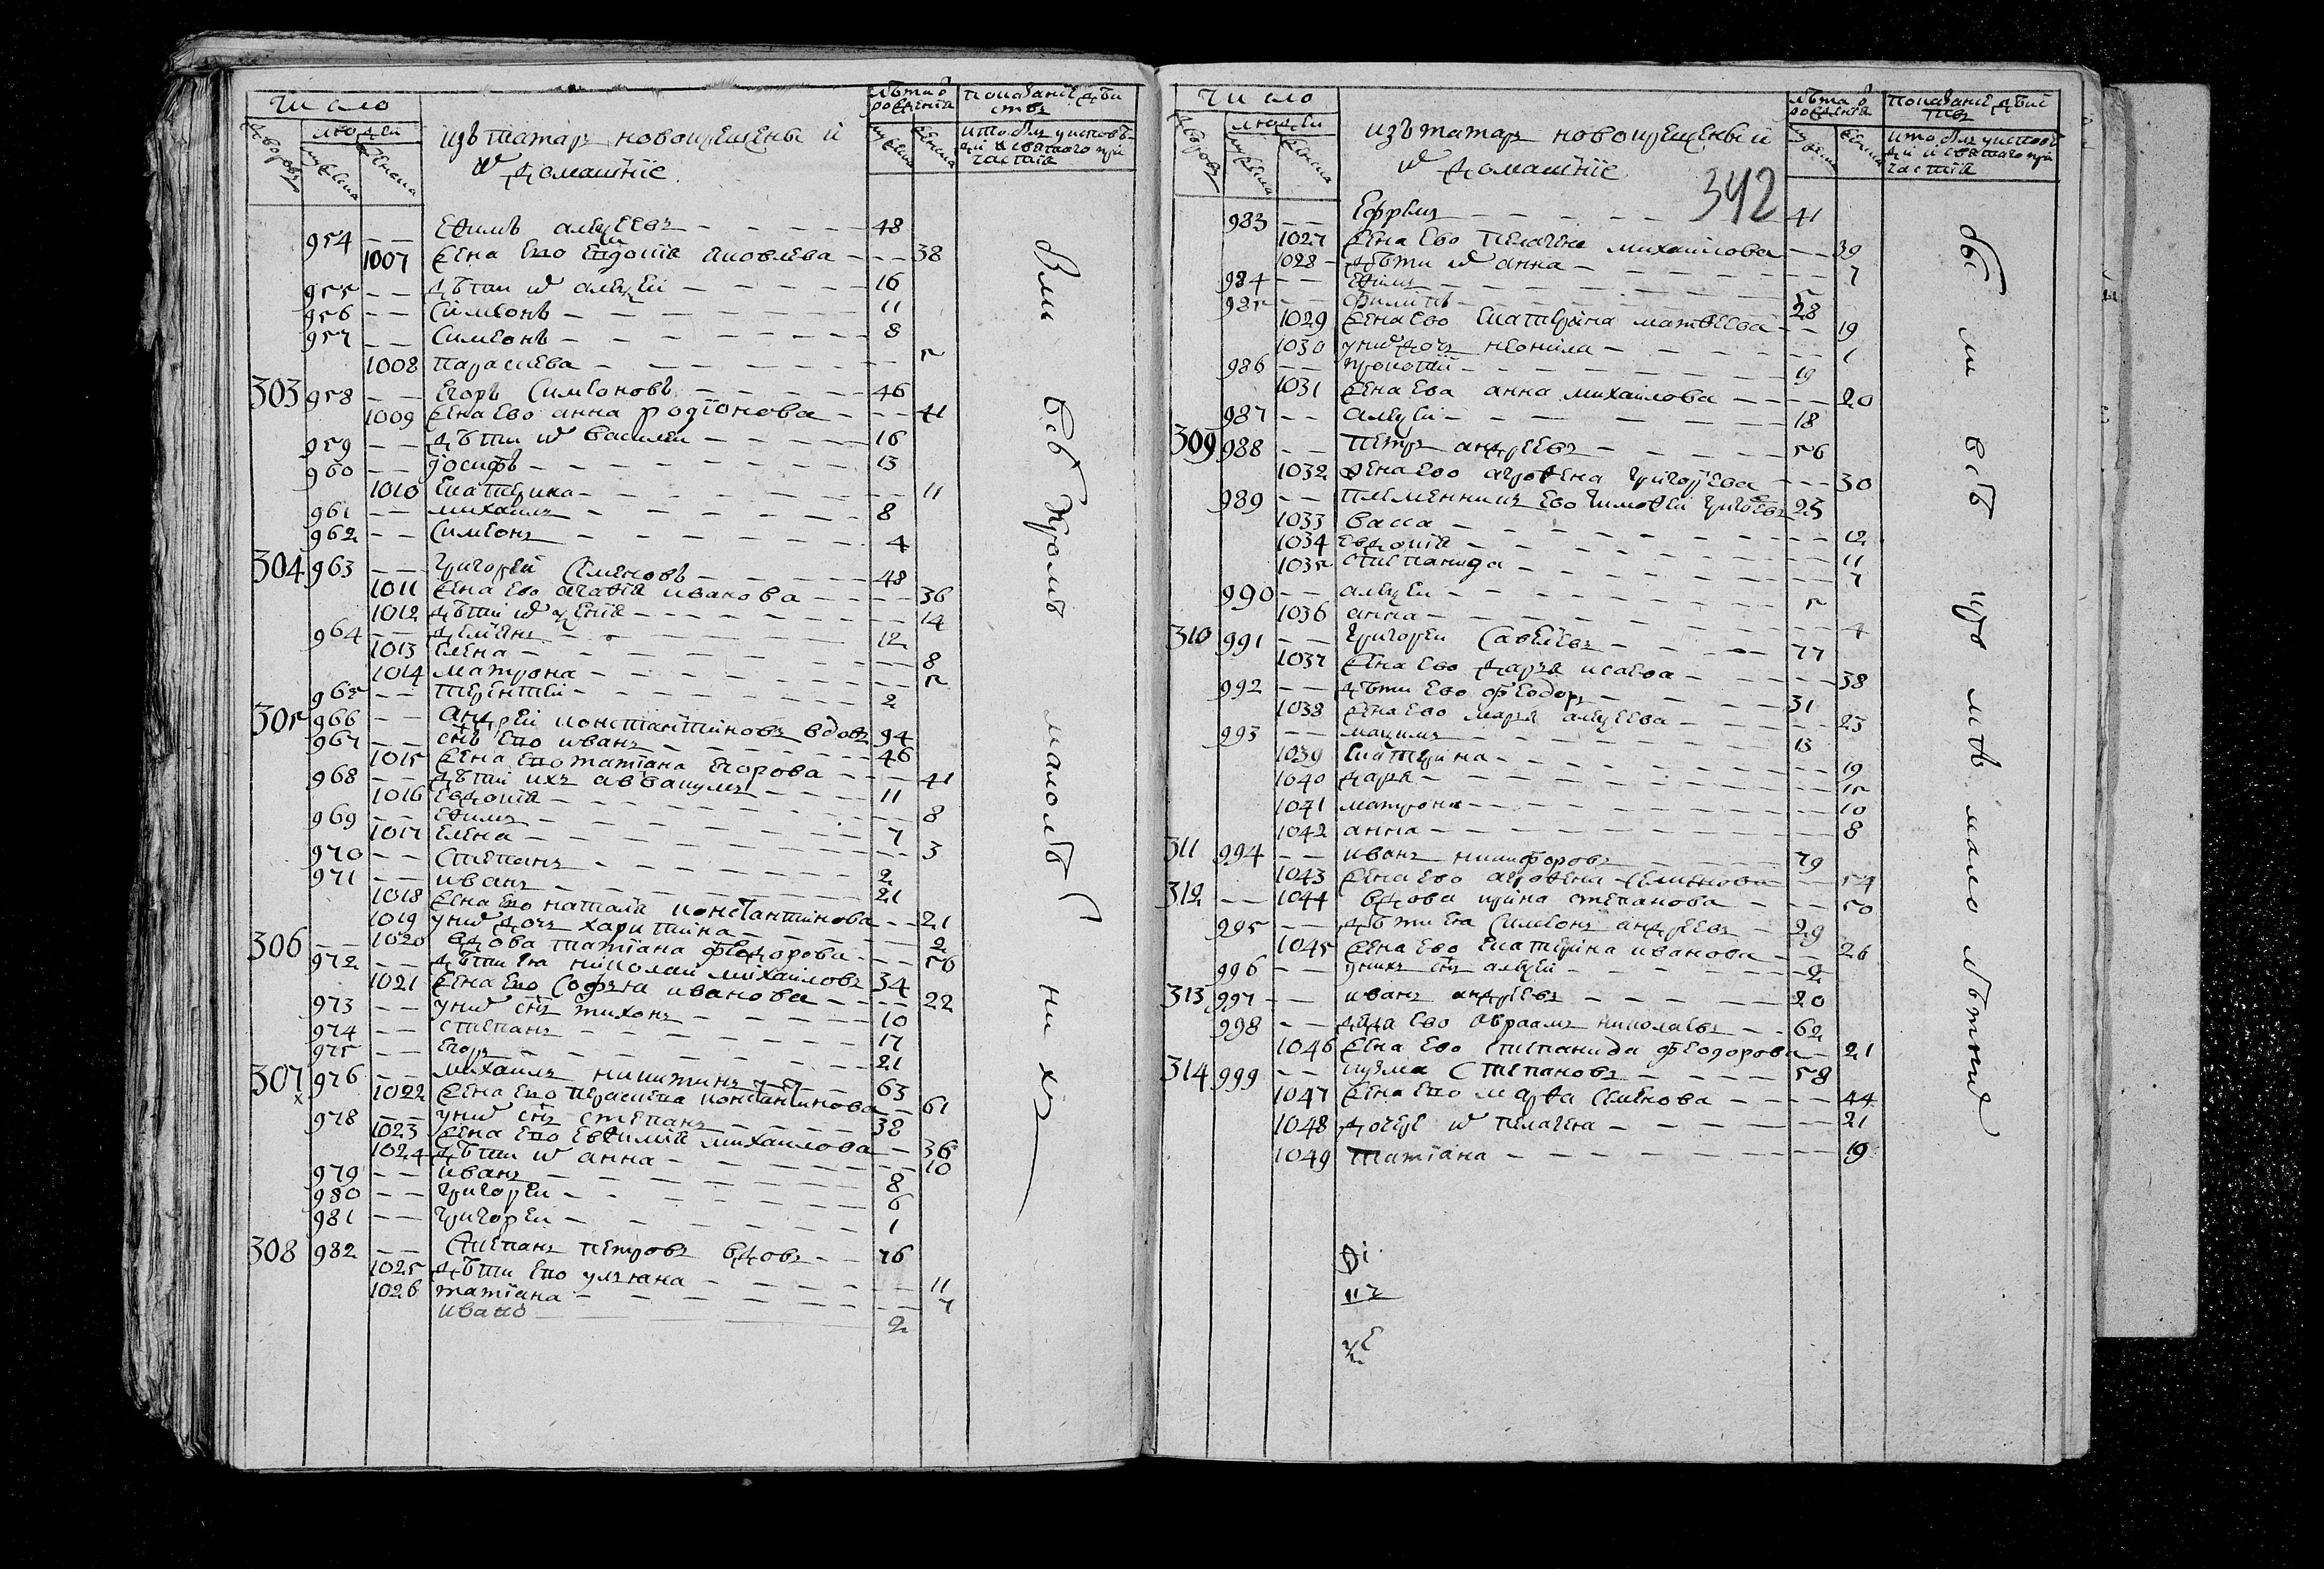 Число
людей
дворовъ
мужеска
женска
изъ татаръ новокрещены и
ѿ домашніе
лѣта ѿ рождения
мужеска
женска
показаніе дѣиствъ
кто былъ у исповѣди и святаго причастія
954 — — Ефимъ алеѯеевъ — 48
1007 жена ево Евдокія Яковлева — 38
955 — — дѣти их алеѯей — 16
956 — — Симеонъ — 11
957 — — Симеонъ — 8
1008 параскева — 5
303 958 — — Егоръ Симеоновъ — 46
1009 жена ево анна родіонова — 41
959 — — дѣти их василеи — 16
960 — — Іосифъ — 13
1010 Екатерина — 11
961 — — михаилъ — 8
962 — — Симеонъ — 4
304 963 — — григорей Семеновъ — 48
1011 жена ево агафія иванова — 36
1012 дѣти их ѯенія — 14
964 — — демианъ — 12
1013 Елена — 8
1014 матрона — 5
965 — — терентей — 2
305 966 — — андрей константиновъ вдовъ 94
967 — — снъ ево иванъ — 46
1015 жена ево татіана Егорова — 41
968 — — дѣти ихъ аввакумъ — 11
1016 Евдокия — 8
969 — — Ефимъ — 7
1017 Елена — 3
970 — — Степанъ — 2
971 — — иванъ — 21
1018 жена ево наталя константинова — 21
1019 у них дочь харитина — 2
306 — — 1020 вдова татіана федорова — 56
972 — — дѣти Ея николай михаиловъ 34
1021 жена ево Софья иванова — 22
973 — — у них снъ тихонъ — 10
974 — — степанъ — 17
975 — — Егоръ — 21
307 976 — — михаилъ никитинъ — 63
1022 жена ево параскева константинова — 61
978 — — у них снъ степанъ — 38
1023 жена ево Евфимия михаилова — 36
1024 дѣти их анна — 10
979 — — иванъ — 8
980 — — григореи — 6
981 — — григореи — 1
308 982 — — Степанъ петровъ вдовъ — 76
1025 дѣти ево ульяна — 11
1026 татіана — 7
ивано — 2
были всѣ кромѣ малолѣ нихъ
Число
людей
дворовъ
мужеска
женска
изъ татаръ новокрещены и
ѿ домашніе
342
лѣта ѿ рождения
мужеска
женска
показаніе дѣиствъ
кто былъ у исповѣди и святаго причастія
983 — — Ефремъ — 41
1027 жена ево пелагея михаилова — 39
1028 дѣти их анна — 7
984 — — Ефимъ — 5
985 — — филипъ — 28
1029 жена ево Екатерина матфеева — 19
1030 у них дочь неонила — 1
986 — — прокопій — 19
1031 жена Ева анна михаилова — 20
987 — — алеѯеи — 18
309 988 — — петръ андреевъ — 56
1032 жена ево агрофена григорьева — 30
989 — — племенникъ ево тимофеи григоревъ 25
1033 васса — 12
1034 евдокия — 11
1035 степанида — 7
990 — — алеѯеи — 5
1036 анна — 4
310 991 — — григореи Савельевъ — 77
1037 жена ево дарья исаева — 38
992 — — дѣти ево феодоръ — 31
1038 жена ево марья алеѯеева — 23
993 — — маѯимъ — 13
1039 Екатерина — 19
1040 дарья — 15
1041 матрона — 10
1042 анна — 8
311 994 — — иванъ никифоровъ — 79
1043 жена ево агрофена Семенова — 54
312 — — 1044 вдова ирина степанова — 50
995 — — дѣти Ея Симеонъ андреевъ — 29
1045 жена ево Екатерина иванова — 26
996 — — у нихъ снъ алеѯей — 2
313 997 — — иванъ андреевъ — 20
998 — — дядя ево Авраамъ николаевъ — 62
1046 жена ево степанида феодорова — 21
314 999 — — кузма Степановъ — 58
1047 жена ево марфа Семенова — 44
1048 дочери их пелагея — 21
1049 татіана — 19
бы ли всѣ кро мѣ мало лѣтних